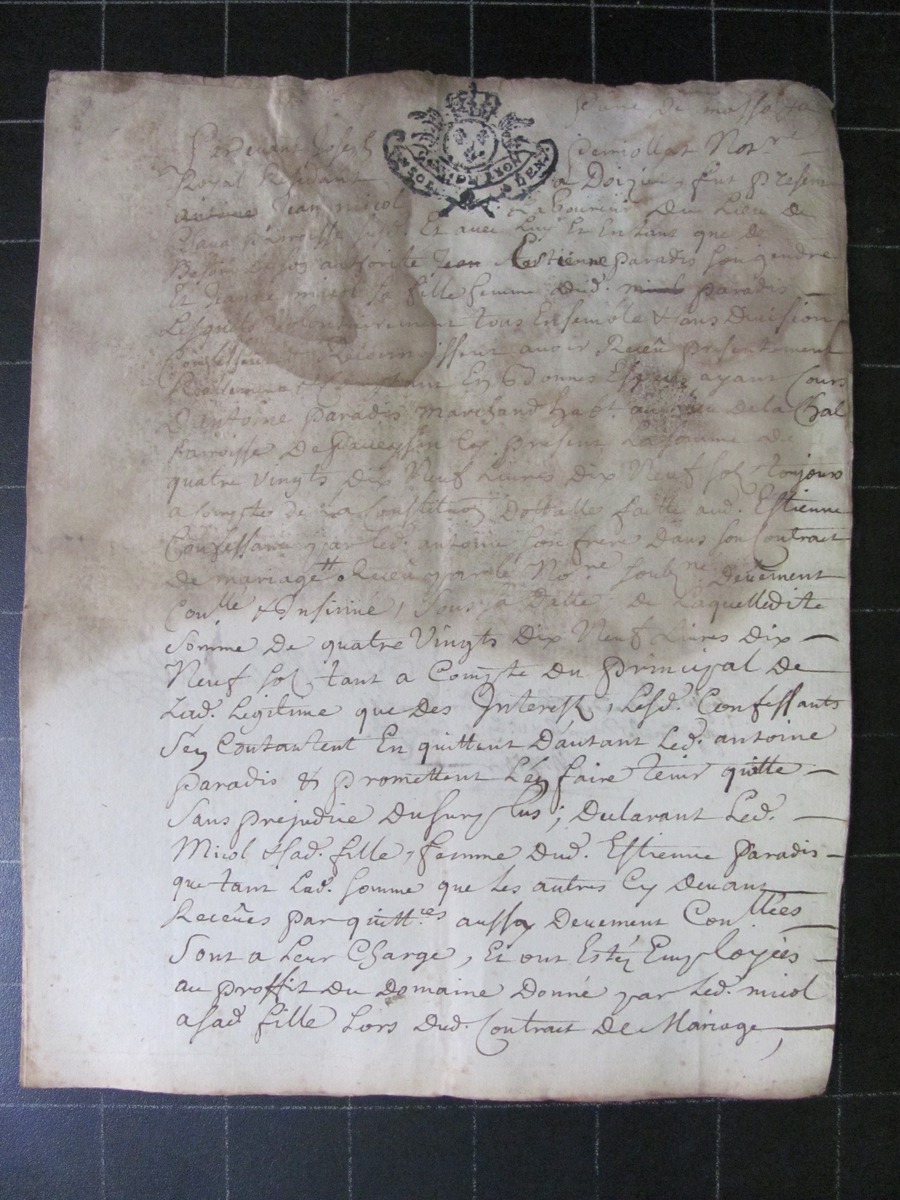 Pardevant Joseph Demollas Not.re
Royal Residant a Doizieu, fut present
antoine Jean micol Laboureur Du Lieu de
parroisse Et avec luy Et En tant que de
Besoin authorité Jean Estienne paradis son gendre
Et Jeanne micol sa fille femme Dud. paradis
Lesquels volontairement tous Ensemble & sans Division
Confessent Reconnoissent avoir Receu presentement
Reellement Et Comptant En bonnes Especes ayant Cours
D'antoine paradis marchand hab.t au lieu de la
parroisse De present La somme de
quatre vingts dix Neuf Livres dix Neuf sols toujours
a Compte de La Constitution Dotalle faitte aud. Estienne
Confessant par led. antoine son frere dans son Contrat
de mariage Receu par le No.re soubz.né Deüement
Con.llé & Insinué, sous sa Datte de Laquelledite
somme de quatre Vingts Dix Neuf Livres Dix
Neuf sols tant a Compte Du principal de
Lad. Legitime que Des Interests, Lesd. Confessants
s'en Contantent En quittent D'autant Led. antoine
paradis & promettent L'en faire tenir quitte
sans prejudice Dusurplus; Declarant Led.
Micol & sad. fille, femme Dud. Estienne paradis
que tant Lad. somme que les autres Cy Devant
Receües par quitt.ces aussy Deuement Con.llées
sont a Leur Charge, Et ont Estéz Employées
au proffit Du Domaine Donné par Led. micol
a sad. fille Lors Dud. Contrat De Mariage,